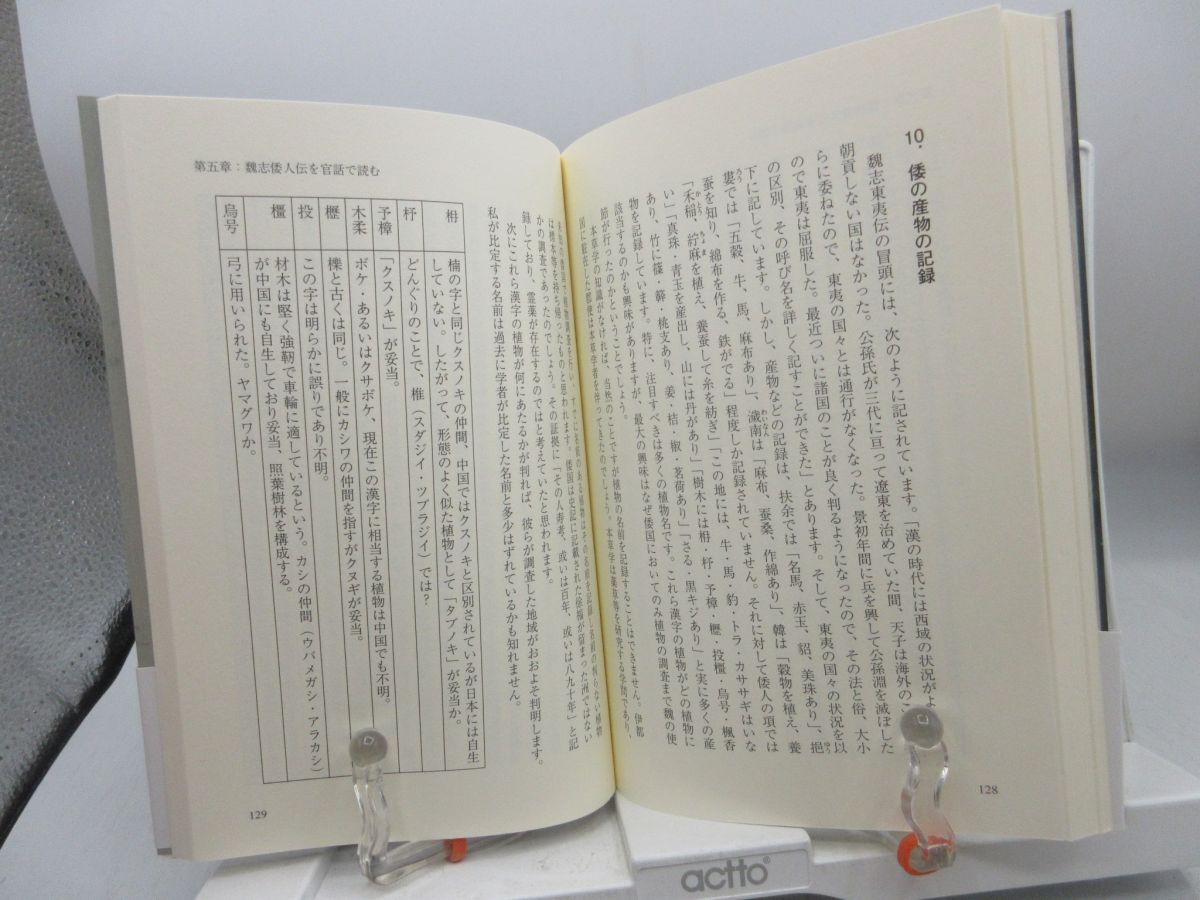 10. 倭の産物の記録
魏志東夷伝の冒頭には、次のように記されています。「漢の時代には西域の状況がよ
朝貢しない国はなかった。公孫氏が三代に亘って遼東を治めていた間、天子は海外のこ
らに委ねたので、東夷の国々とは通行がなくなった。景初年間に兵を興して公孫淵を滅ぼした
ので東夷は屈服した。最近ついに諸国のことが良く判るようになったので、その法と俗、大小
の区別、その呼び名を詳しく記すことができた」とあります。そして、東夷の国々の状況を以
下に記しています。しかし、産物などの記録は、扶余では「名馬、赤玉、貂、美珠あり」、挹
婁では「五穀、牛、馬、麻布あり」、濊南は「麻布、蚕桑、作綿あり」、韓は「穀物を植え、養
蚕を知り、綿布を作る、鉄がでる」程度しか記録されていません。それに対して倭人の項では
「禾稲、紵麻を植え、養蚕して糸を紡ぎ」「この地には、牛・馬・豹・トラ・カササギはいな
い」「真珠・青玉を産出し、山には丹があり」「樹木には枏・杼・予樟・櫪・投橿・烏号・楓香
あり、竹に篠・簳・桃支あり、姜・桔・椒・茗荷あり」「さる・黒キジあり」と実に多くの産
物を記録しています。特に、注目すべきは多くの植物名です。これら漢字の植物がどの植物に
該当するのかも興味がありますが、最大の興味はなぜ倭国においてのみ植物の調査まで魏の使
節が行ったのかということでしょう。
本草学の知識がなければ、当然のことですが植物の名前を記録することはできません。伊都
国に駐在した郡使は本草学者を伴ってきたのでしょう。本草学は薬草等を研究する学問であり、
128
第五章：魏志倭人伝を官話で読む
は標本等を持ち帰ったものと思われます。倭国は史記に記載された徐福が留まった洲ではない
かの調査であったのでしょう。その証拠に「その人寿考、或いは百年、或いは八九十年」と記
録しており、霊薬が存在するのではと考えていたと思われます。
次にこれら漢字の植物が何にあたるかが判れば、彼らが調査した地域がおおよそ判明します。
私が比定する名前は過去に学者が比定した名前と多少はずれているかも知れません。
枏 楠の字と同じクスノキの仲間、中国ではクスノキと区別されているが日本には自生
していない。したがって、形態のよく似た植物として「タブノキ」が妥当か。
杼 どんぐりのことで、椎（スダジイ・ツブラジイ）では？
予樟 「クスノキ」が妥当。
木柔 ボケ・あるいはクサボケ、現在この漢字に相当する植物は中国でも不明。
櫪 櫟と古くは同じ。一般にカシワの仲間を指すがクヌギが妥当。
投 この字は明らかに誤りであり不明。
橿 材木は堅く強靭で車輪に適しているという。カシの仲間（ウバメガシ・アラカシ）
が中国にも自生しており妥当、照葉樹林を構成する。
烏号 弓に用いられた。ヤマグワか。
129
actto